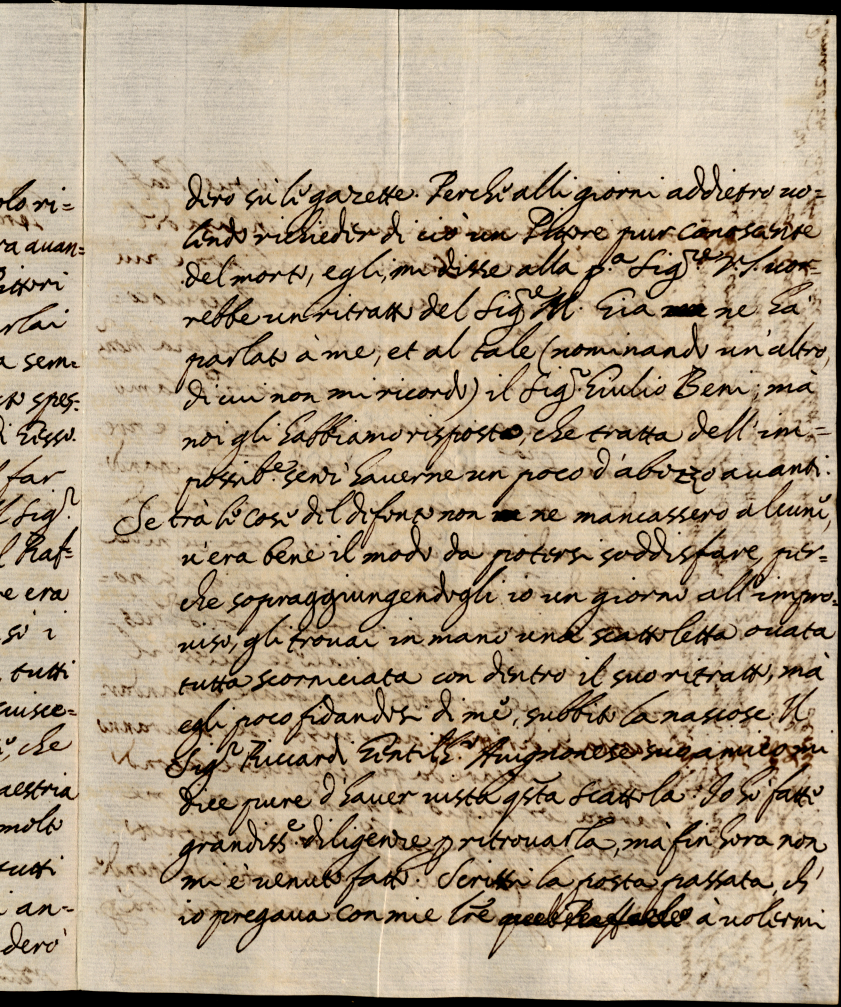 olo ri=
ra auan=
Pittori
rlai
a sem=
to spes=
di Esso.
l far
l Sig.r
l Raf=
e era
si i
tutti
uisce=
e, che
aestria
molt
tutti
i an=
derò
dirò sù le gazette. Perche alli giorni addietro uo=
lendo richieder di ciò un Pittore pur conoscente
del morto, egli mi disse alla p.a Sig.re V.S. uor=
rebbe un ritratto del Sig.re M. Già ne ha
parlato à me, et al tale (nominando un'altro,
di cui non mi ricordo) il Sig.r Giulio Beni, mà
noi gli habbiamo risposto, che tratta dell'im=
possib.e senz'hauerne un poco d'abozzo auanti.
Se trà le cose del difonto non ne mancassero alcune,
u'era bene il modo da potersi soddisfare, per=
che sopraggiungendogli io un giorno all'impro=
uiso, gli trouai in mano una scattoletta ouata
tutta scorniciata con dentro il suo ritratto, mà
egli poco fidandosi di me, subbito la nascose. Il
Sig.r Riccardi Gentilh.o Auignonese suo amico mi
dice pure d'hauer uista q.sta scattola. Io hò fatte
grandiss.e diligenze p ritrouarla, mà fin hora non
mi è uenuto fatto. Scrissi la posta passata, ch'
io pregaua con mie l're à uolermi